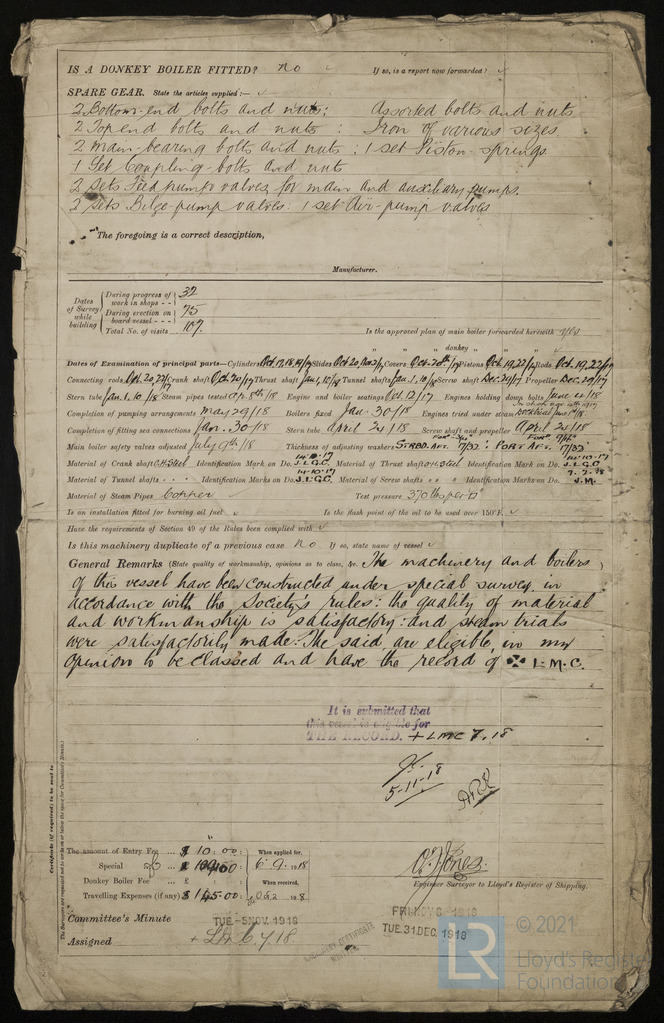 IS A DONKEY BOILER FITTED? No ✓ If so, is a report now forwarded? ✓
SPARE GEAR. State the articles supplied:— ✓
2 Bottom-end bolts and nuts: Assorted bolts and nuts
2 Top end bolts and nuts : Iron of various sizes
2 main-bearing bolts and nuts : 1 set Piston-springs
1 Set Coupling-bolts and nuts
2 sets Feed pump valves for main and auxiliary pumps.
2 sets Bilge-pump valves: 1 set Air-pump valves
The foregoing is a correct description,
Manufacturer.
Dates of Survey while building
During progress of work in shops - - 32
During erection on board vessel - - - 75
Total No. of visits 107
Is the approved plan of main boiler forwarded herewith yes
" " " donkey " " "
Dates of Examination of principal parts—Cylinders Oct 17,18,19/17 Slides Oct 20, Nov 2/17 Covers Oct 20th/17 Pistons Oct 19,22/17 Rods Oct 19,22/17
Connecting rods Oct 20,22/17 Crank shaft Oct 20/17 Thrust shaft Jan 1,10/18 Tunnel shafts Jan 1,10/18 Screw shaft Dec 29/17 Propeller Dec 29/17
Stern tube Jan 1, 10/18 Steam pipes tested Apr 8th/18 Engine and boiler seatings Oct 12/17 Engines holding down bolts June 4/18
Completion of pumping arrangements May 29/18 Boilers fixed Jan 30/18 Engines tried under steam
Completion of fitting sea connections Jan 30/18 Stern tube April 24/18 Screw shaft and propeller April 24/18
Main boiler safety valves adjusted July 9th/18 Thickness of adjusting washers STRBD. AFT. 17/32" PORT AFT. 17/32"
Material of Crank shaft O.H. Steel Identification Mark on Do. J.L.G.C. Material of Thrust shaft O.H. Steel Identification Mark on Do. J.L.G.C.
Material of Tunnel shafts " " Identification Marks on Do. J.L.G.C. Material of Screw shafts " " Identification Marks on Do. J.M.
Material of Steam Pipes Copper ✓ Test pressure 370 lbs per □"
Is an installation fitted for burning oil fuel ✓ Is the flash point of the oil to be used over 150°F. ✓
Have the requirements of Section 49 of the Rules been complied with ✓
Is this machinery duplicate of a previous case No If so, state name of vessel ✓
General Remarks (State quality of workmanship, opinions as to class, &c. The machinery and boilers
of this vessel have been constructed under special survey in
accordance with the Society's rules: the quality of material
and workmanship is satisfactory: and steam trials
were satisfactorily made: The said are eligible, in my
opinion to be classed and have the record of ✠ L.M.C.
It is submitted that
this vessel is eligible for
THE RECORD. + LMC 7.18
5-11-18
Certificate (if required) to be sent to
The amount of Entry Fee ... $ 10.00: When applied for,
Special ... $ 6.9.1918
Donkey Boiler Fee ... £ : : When received,
Travelling Expenses (if any) $ 145.00:
Engineer Surveyor to Lloyd's Register of Shipping.
Committee's Minute TUE-5 NOV. 1918
FRI. NOV 8-1918
TUE. 31 DEC. 1918
Assigned + LMC 7.18
MACHINERY CERTIFICATE
WRITTEN.
LR © 2021
Lloyd's Register
Foundation